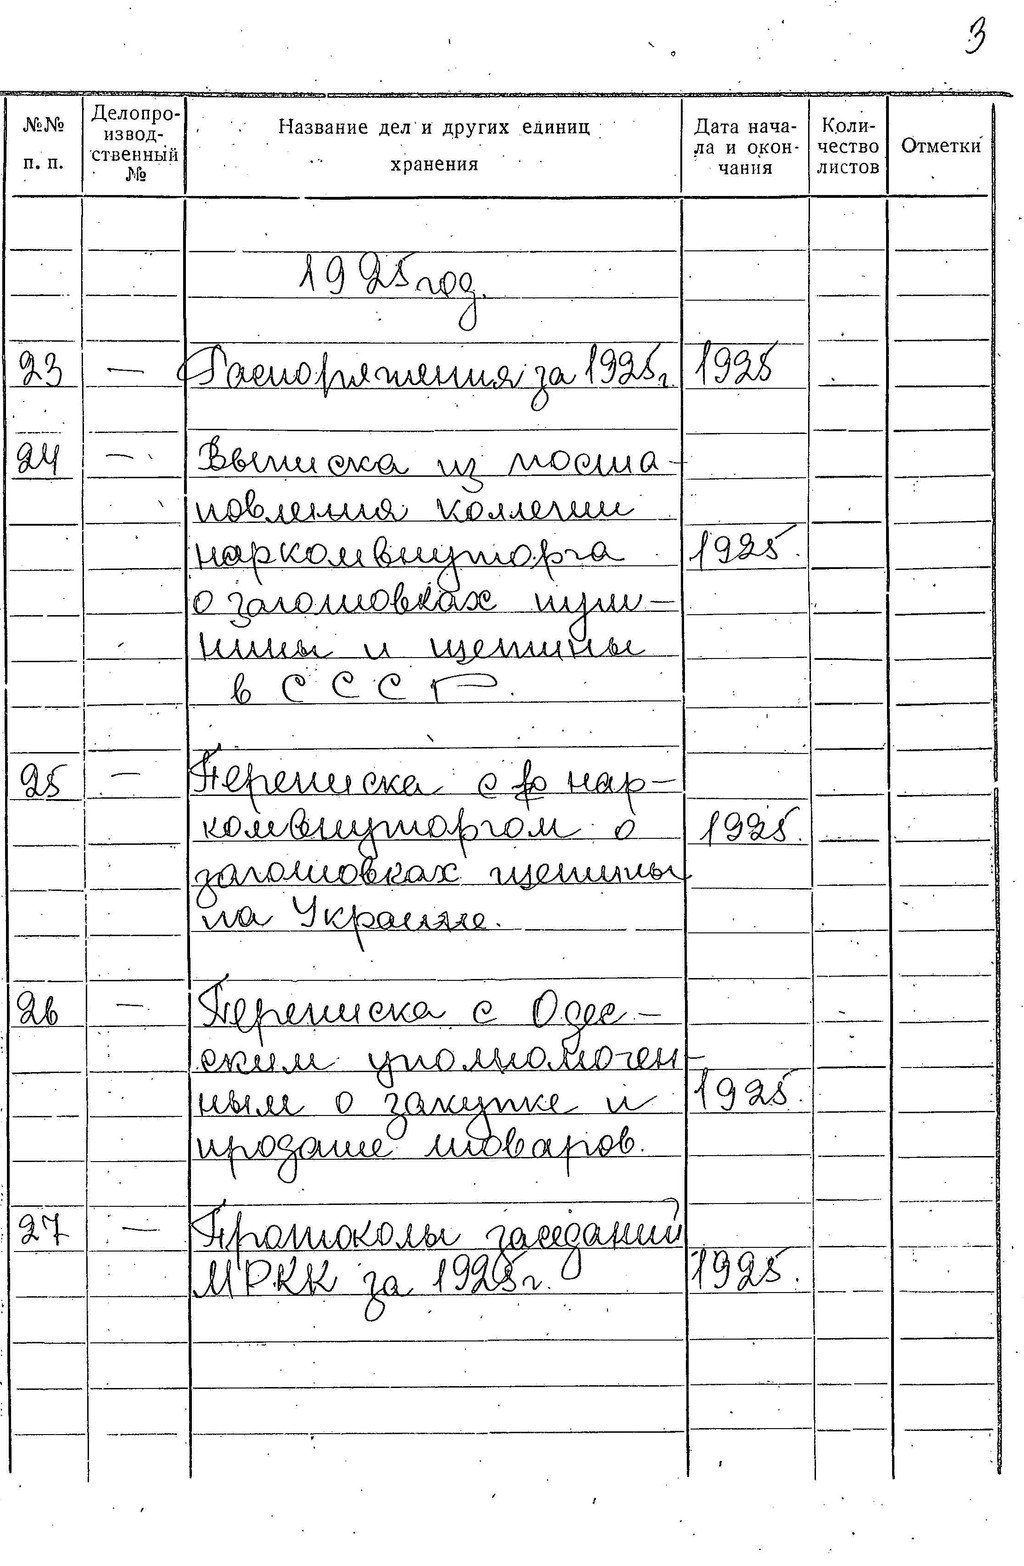 3
№№ п. п.
Делопро-
извод-
ственный
№
Название дел и других единиц
хранения
Дата нача-
ла и окон-
чания
Коли-
чество
листов
Отметки
1925 год.
23 — Распоряжения за 1925 г. 1925
24 — Выписка из поста-
новления коллегии
наркомвнуторга 1925.
о заготовках пуш-
нины и щетины
в СССР.
25 — Переписка с нар-
комвнуторгом о 1925.
заготовках щетины
на Украине.
26 — Переписка с Одес-
ским уполномочен-
ным о закупке и 1925.
продаже товаров.
27 — Протоколы заседаний
МРКК за 1925 г. 1925.